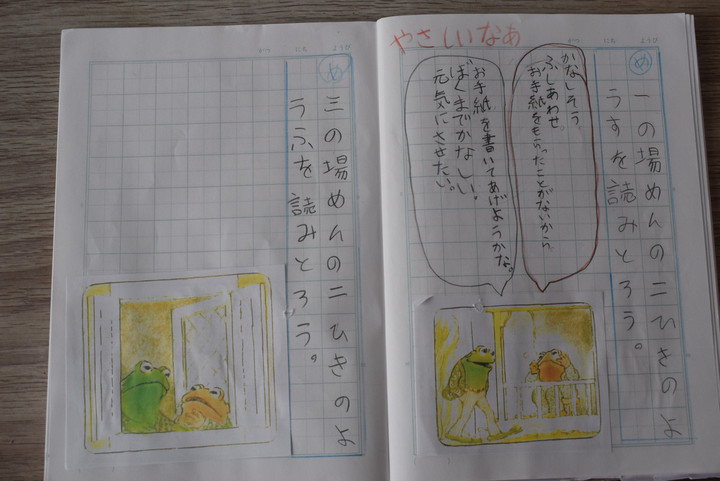 やさしいなぁ
がつ にち ようび
め
一の場めんの二ひきのよ
うすを読みとろう。
かなしそう
ふしあわせ
お手紙をもらったことがないから
お手紙を書いてあげようかな。
ぼくまでかなしい。
元気にさせたい。
がつ にち ようび
め
三の場めんの二ひきのよ
うふを読みとろう。